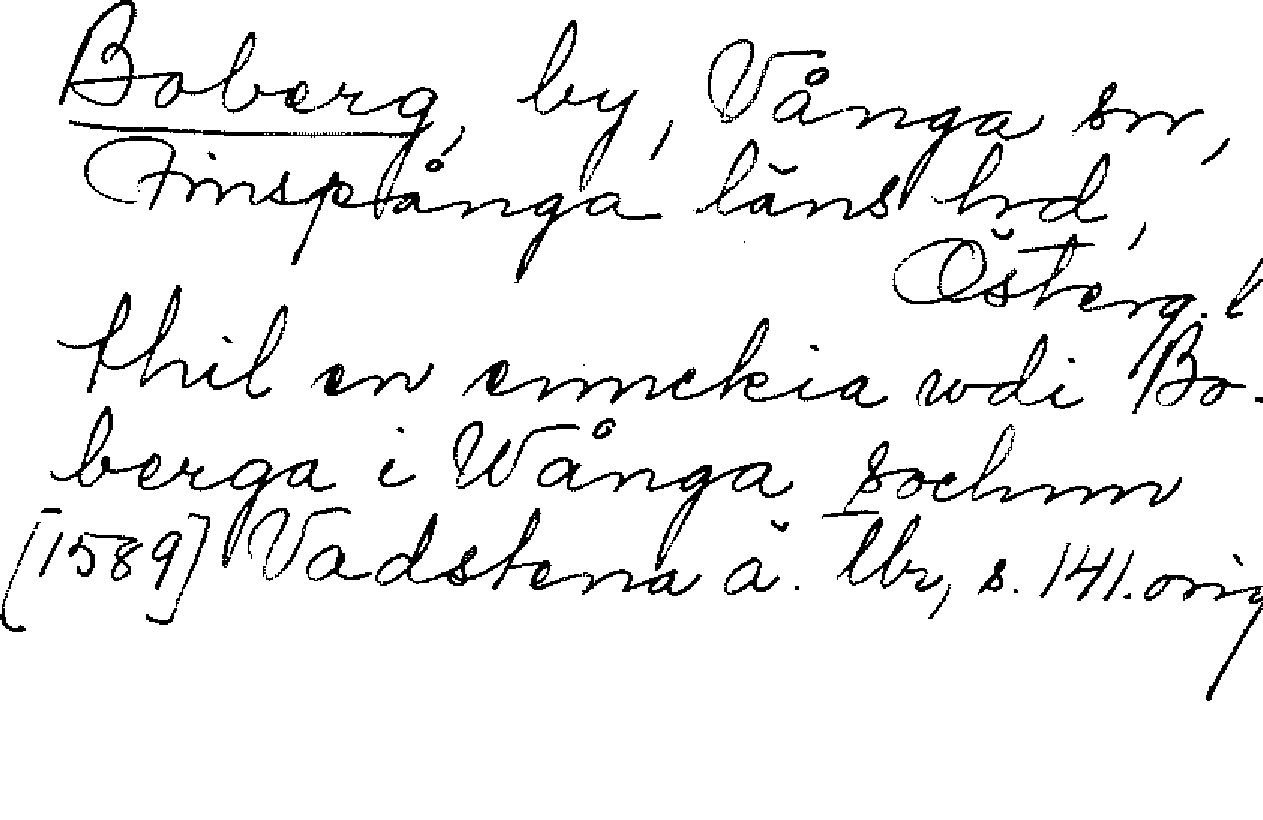 Boberg, by, Vånga sn,
Finspånga läns hd,
Österg. l
thil en ennckia wdi Bo-
berga i Wånga sochnn
[1589] Vadstena ä. tbr, s. 141. orig